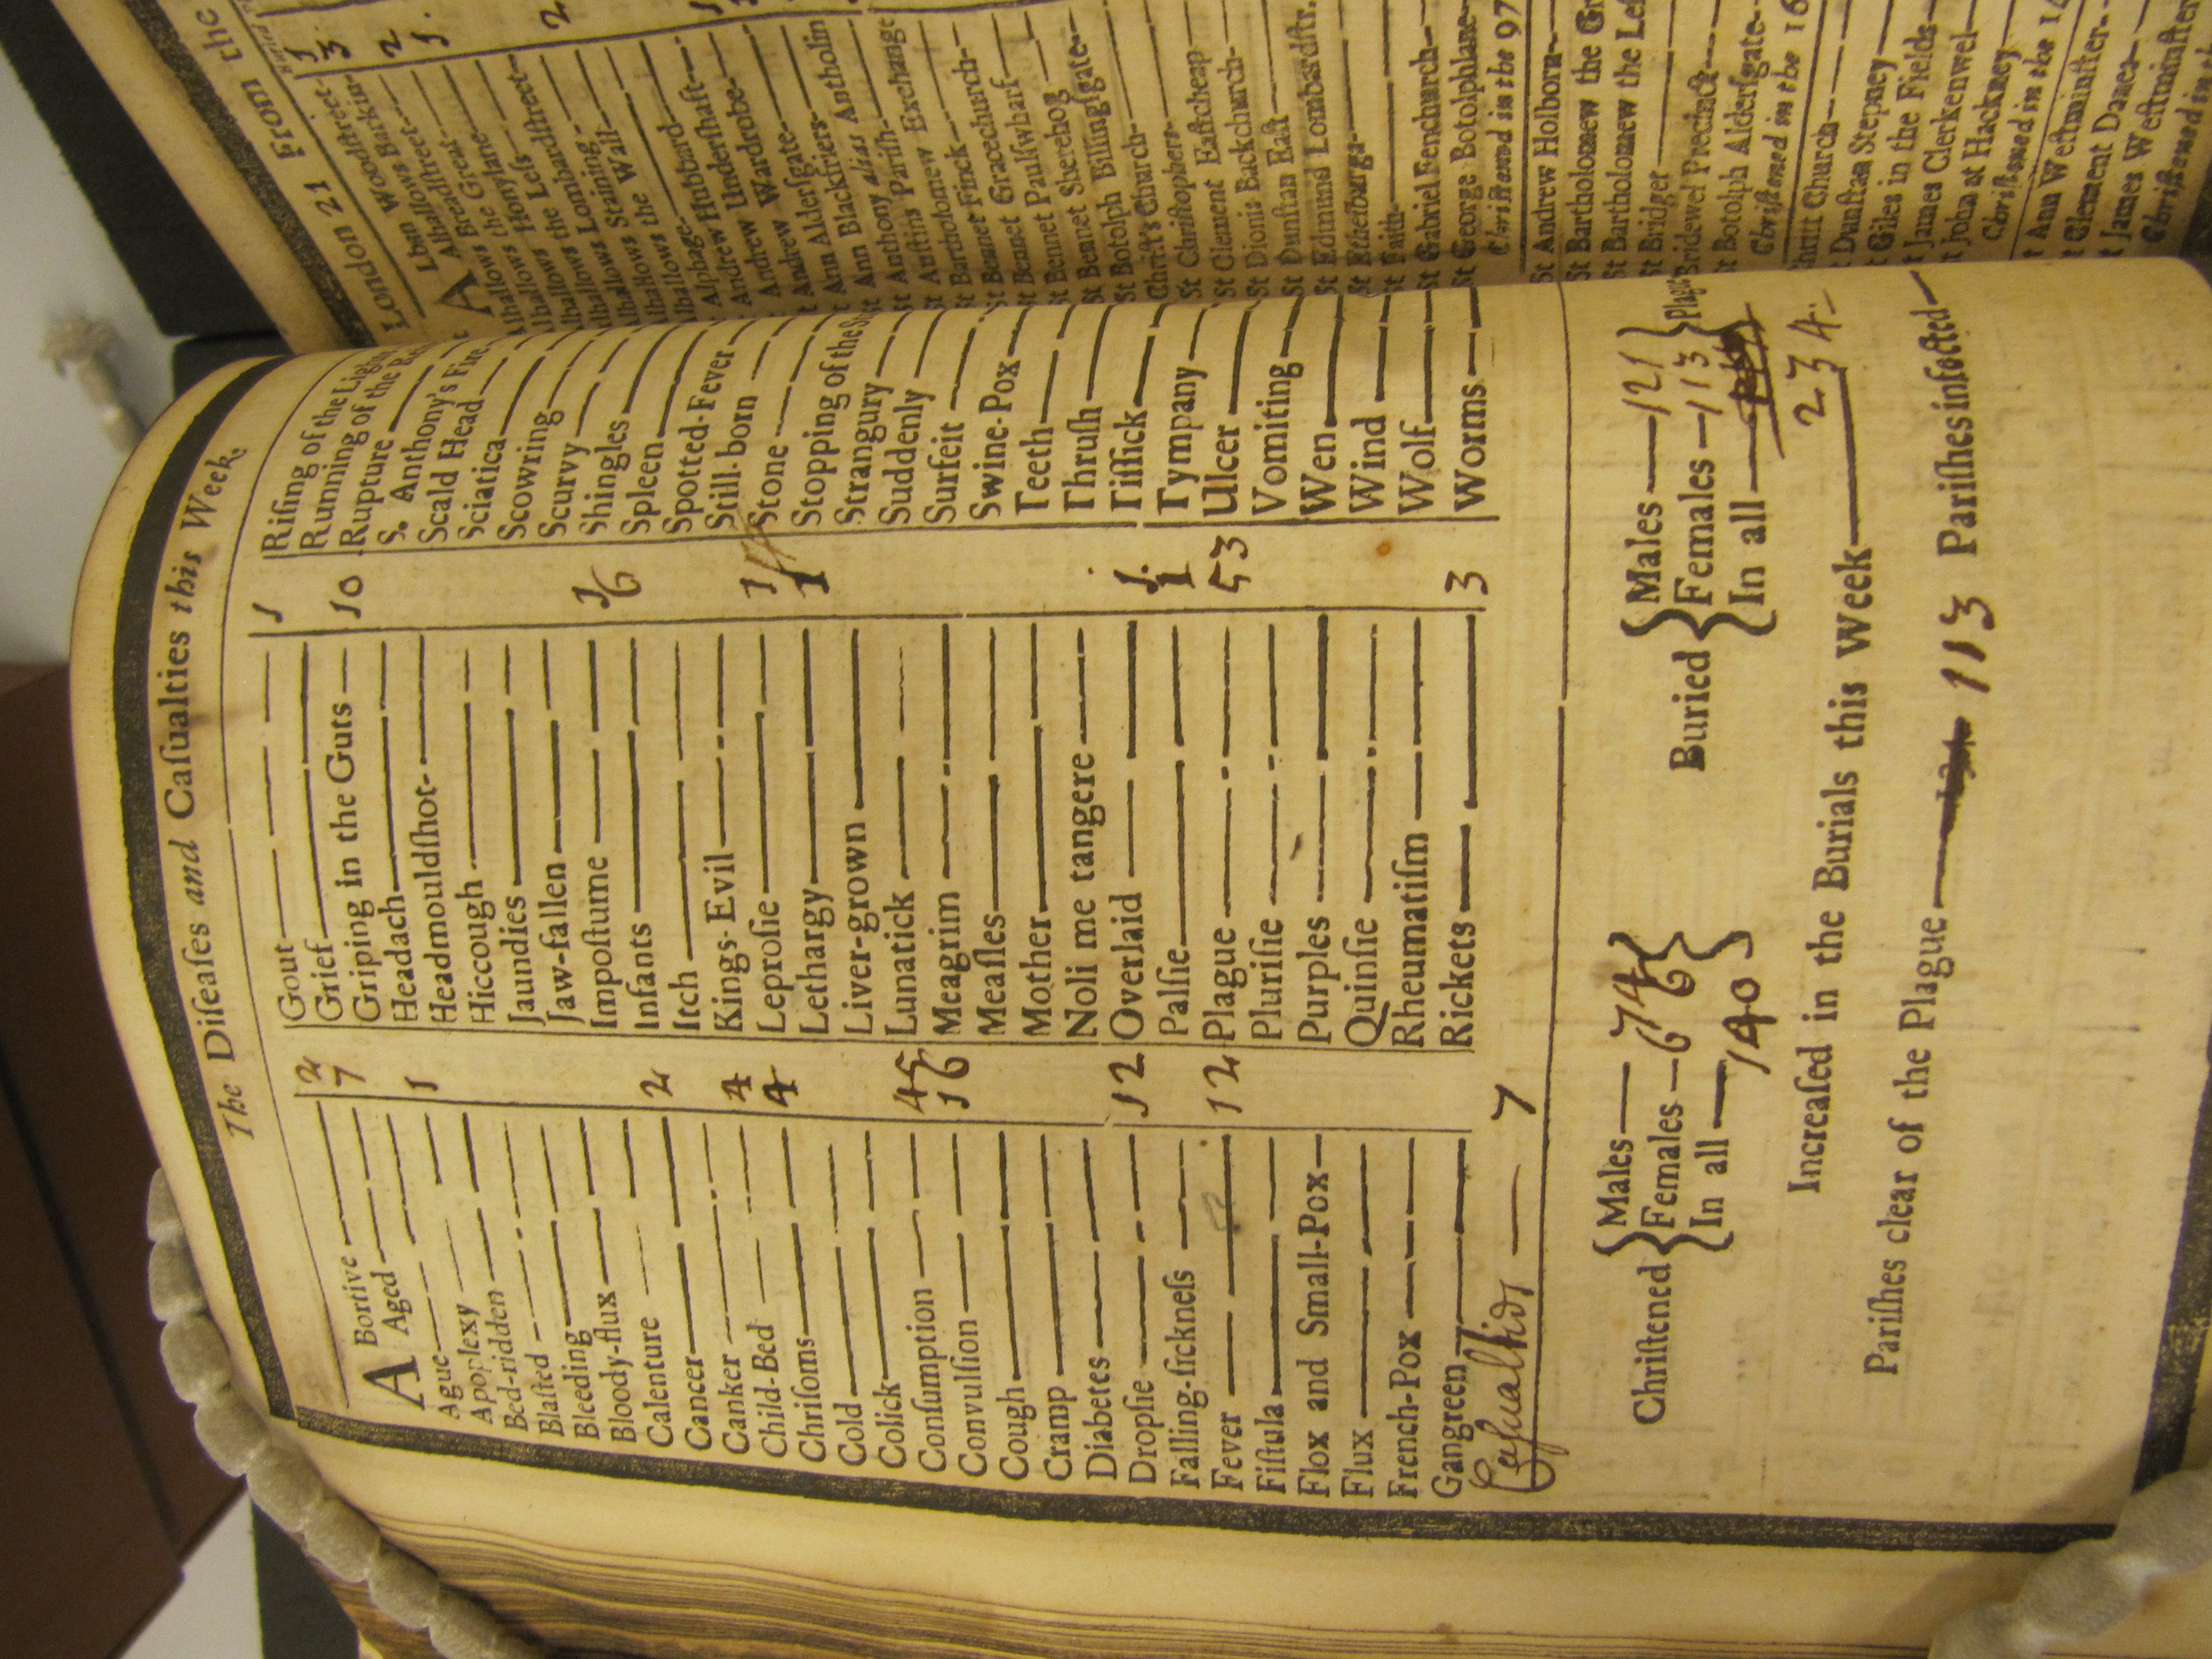 The Diſeaſes and Caſualties this Week.
ABortive 2
Aged 7
Ague
Apoplexy 1
Bed-ridden
Blaſted
Bleeding
Bloody-flux
Calenture
Cancer 2
Canker
Child-Bed 4
Chriſoms 4
Cold
Colick
Conſumption 45
Convulſion 16
Cough
Cramp
Diabetes
Dropſie 12
Falling-ſickneſs
Fever 12
Fiſtula
Flox and Small-Pox
Flux
French-Pox
Gangreen
Caſualtids — 7
Gout 1
Grief
Griping in the Guts 10
Headach
Headmouldſhot
Hiccough
Jaundies
Jaw-fallen
Impoſtume 1
Infants 6
Itch
Kings-Evil
Leproſie 1
Lethargy 1
Liver-grown
Lunatick
Meagrim
Meaſles
Mother
Noli me tangere
Overlaid 1
Palſie 1
Plague 53
Pluriſie
Purples
Quinſie
Rheumatiſm
Rickets 3
Riſing of the
Running of the
Rupture
S. Anthony's Fire
Scald Head
Sciatica
Scowring
Scurvy
Shingles
Spleen
Spotted-Fever
Still-born
Stone
Stopping of the
Strangury
Suddenly
Surfeit
Swine-Pox
Teeth
Thruſh
Tiſſick
Tympany
Ulcer
Vomiting
Wen
Wind
Wolf
Worms
Chriſtened { Males — 74
Females — 66
In all — 140
Buried { Males — 121
Females — 113
In all — 234
Plag
Increaſed in the Burials this Week
Pariſhes clear of the Plague — 113 Pariſhes infected
London 21 From the
St ALban Woodſtreet 1
Alhallows Barkin 3
Alhallows Breadſtreet 2
Alhallows Great 1
Alhallows Honylane
Alhallows Leſs
Alhallows Lombardſtreet 2
Alhallows Staining
Alhallows the Wall
St Alphage
St Andrew Hubbard
St Andrew Underſhaft
St Andrew Wardrobe
St Ann Alderſgate
St Ann Blackfriers
St Antholin alias Anthony Pariſh
St Auſtins Pariſh
St Bartholomew Exchange
St Bennet Finck
St Bennet Gracechurch
St Bennet Paulſwharf
St Bennet Sherehog
St Botolph Billingſgate
Chriſt's Church
St Chriſtophers
St Clement Eaſtcheap
St Dionis Backchurch
St Dunſtan Eaſt
St Edmund Lombardſtr.
St Ethelburga
St Faith
St Gabriel Fenchurch
St George Botolphlane
Chriſtned in the 97
St Andrew Holborn
St Bartholomew the Gr
St Bartholomew the Leſ
St Bridget
Bridewel Precinct
St Botolph Alderſgate
Chriſtned in the 16
Chriſt Church
St Dunſtan Stepney
St Giles in the Fields
St James Clerkenwel
St John at Hackney
Chriſtned in the 14
St Ann Weſtminſter
St Clement Danes
St James Weſtminſter